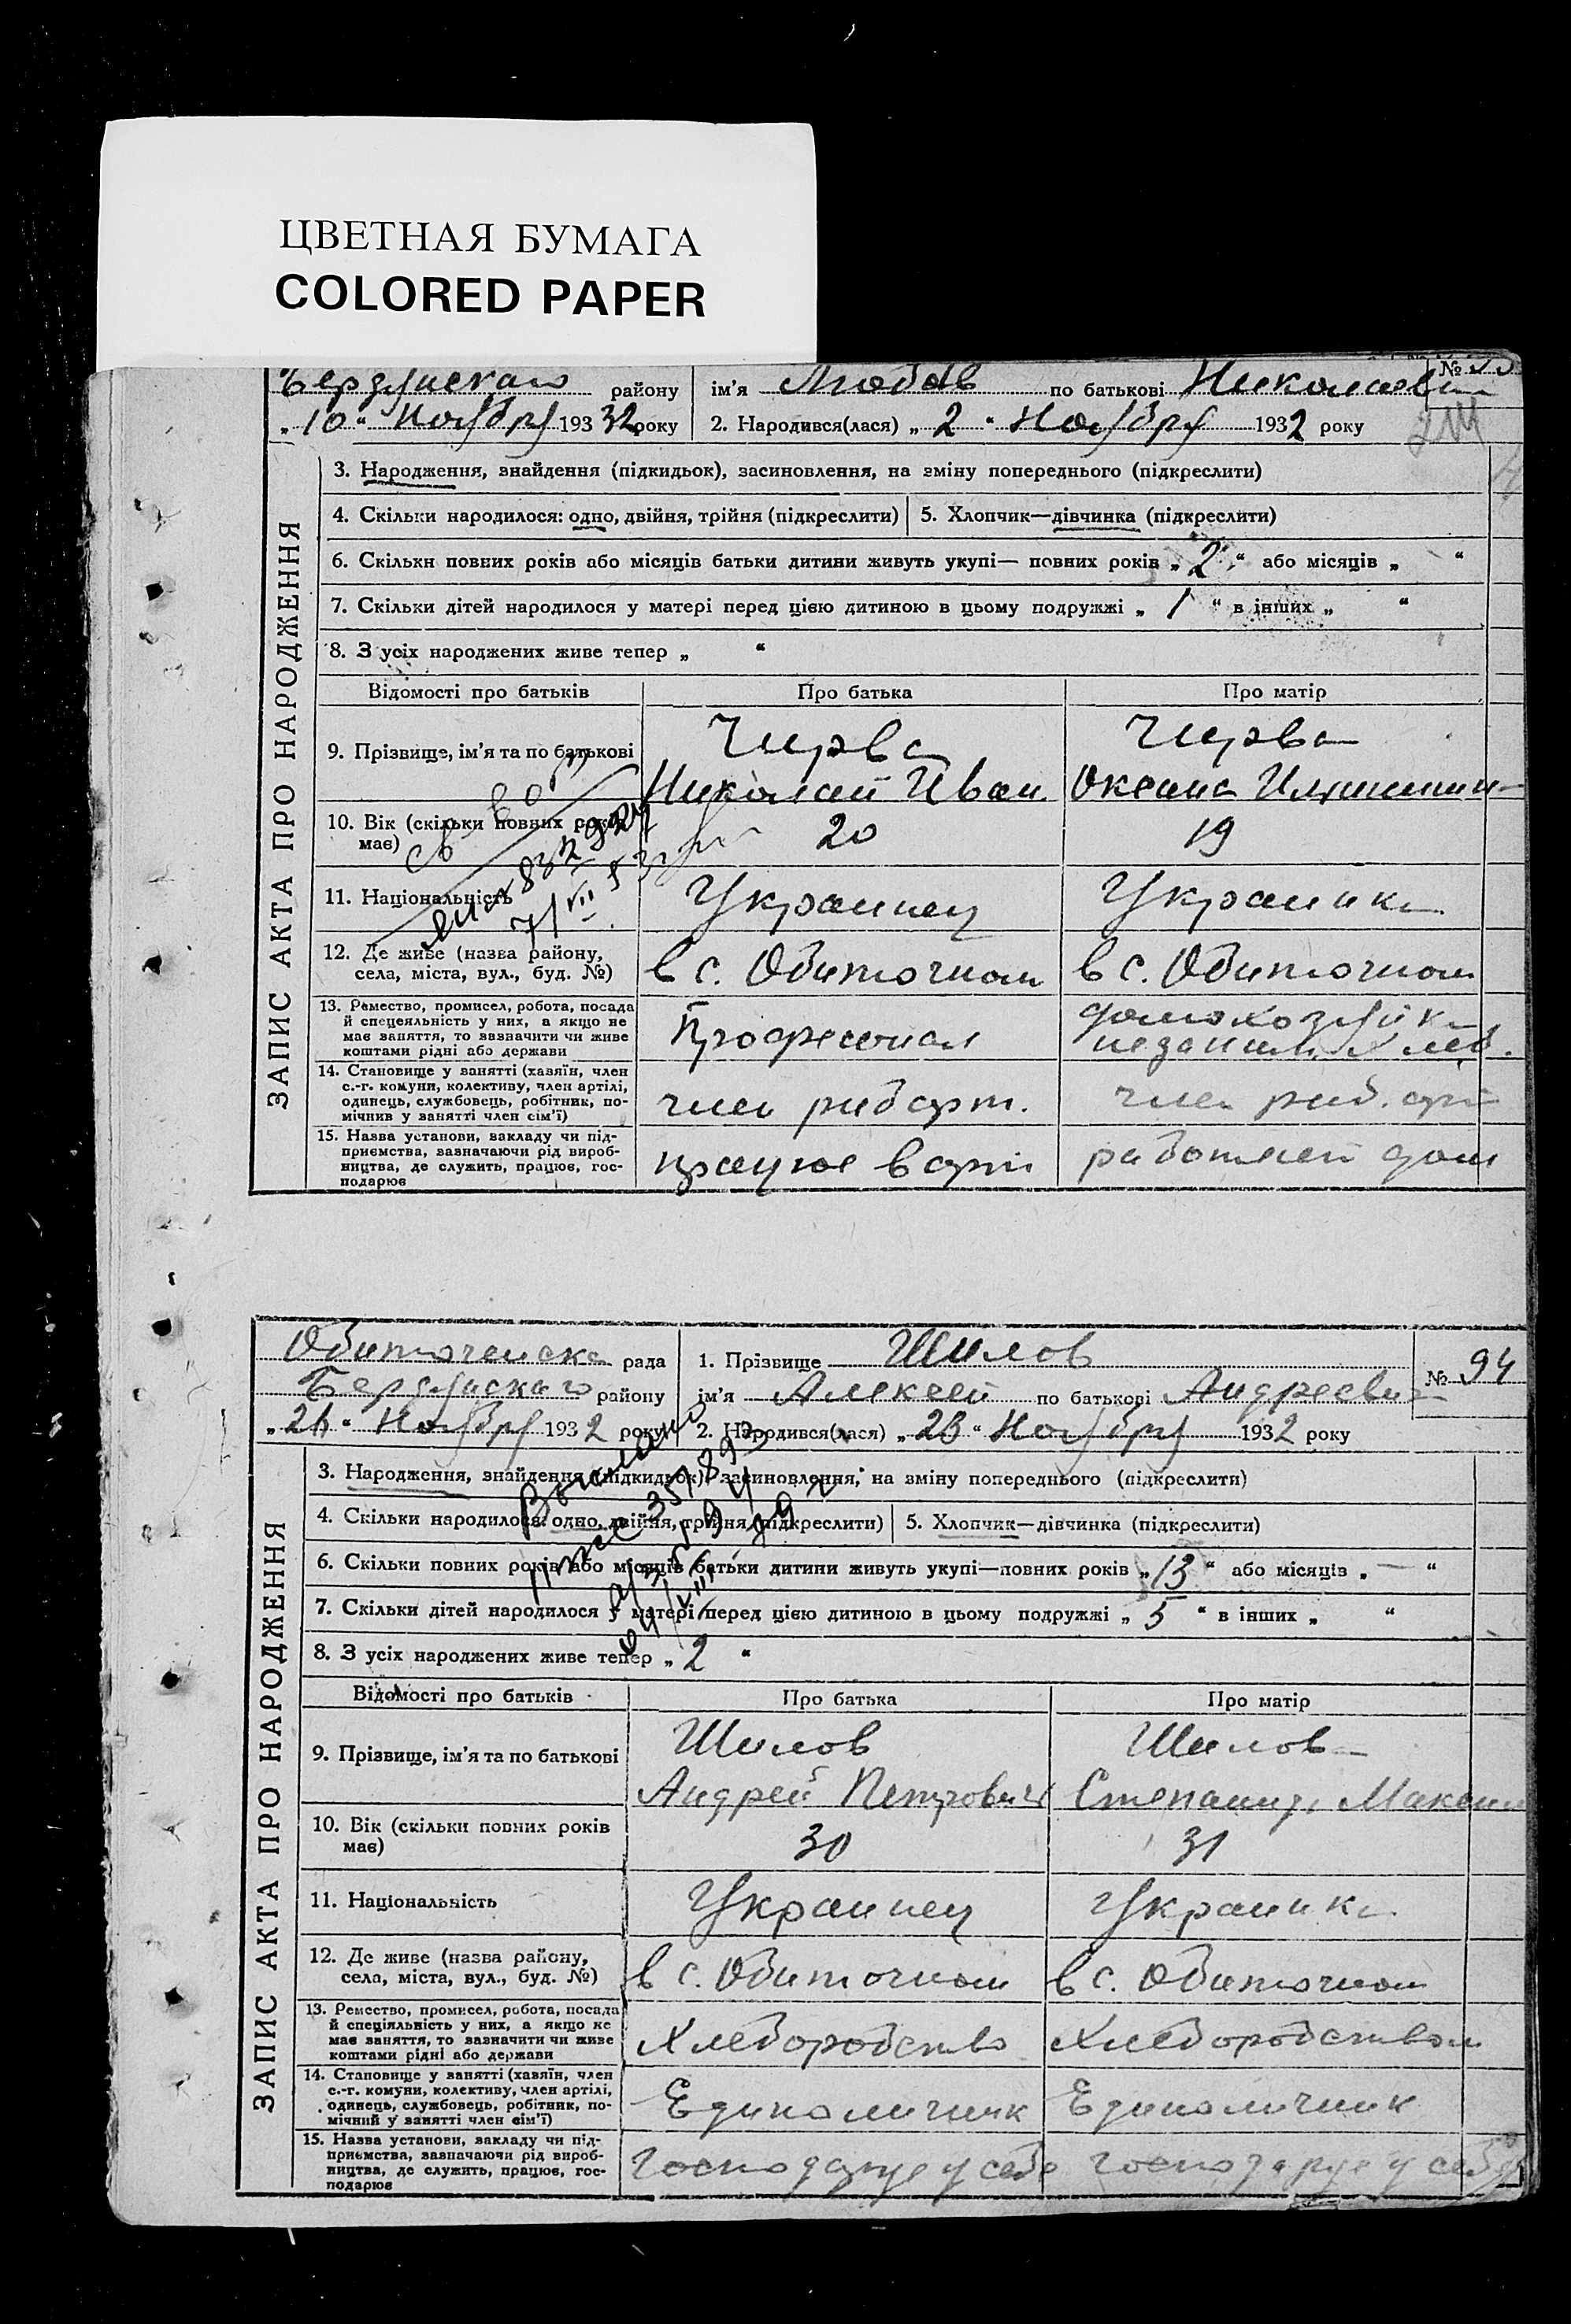 ЦВЕТНАЯ БУМАГА
COLORED PAPER
Бердянскаго району
ім'я Любовь по батькові Николаевн
№
„10“ Ноября 1932 року
2. Народився(лася) „2“ Ноября 1932 року
ЗАПИС АКТА ПРО НАРОДЖЕННЯ
3. Народження, знайдення (підкидьок), засиновлення, на зміну попереднього (підкреслити)
4. Скільки народилося: одно, двійня, трійня (підкреслити)
5. Хлопчик—дівчинка (підкреслити)
6. Скільки повних років або місяців батьки дитини живуть укупі— повних років „2“ або місяців „ “
7. Скільки дітей народилося у матері перед цією дитиною в цьому подружжі „1“ в інших „ “
8. З усіх народжених живе тепер „ “
Відомості про батьків
Про батька
Про матір
9. Прізвище, ім'я та по батькові
Чирва
Николай Иван
Чирва
Оксана
10. Вік (скільки повних років
має)
20
19
11. Національність
Украинец
Украинка
12. Де живе (назва району,
села, міста, вул., буд. №)
в с. Обиточном
в с. Обиточном
13. Ремество, промисел, робота, посада
й спецеяльність у них, а якщо не
має заняття, то зазначити чи живе
коштами рідні або держави
домохозяйка
14. Становище у занятті (хазяїн, член
с.-г. комуни, колективу, член артілі,
одинець, службовець, робітник, по-
мічник у занятті член сім'ї)
член рибарт.
член риб. арт
15. Назва установи, закладу чи під-
приємства, зазначаючи рід вироб-
ництва, де служить, працює, гос-
подарює
працює в арті
работает дом
Обиточенска рада
1. Прізвище Шилов
№ 94
Бердянскаго району
ім'я Алексей по батькові Андреевич
„26“ Ноября 1932 року
2. Народився(лася) „23“ Ноября 1932 року
ЗАПИС АКТА ПРО НАРОДЖЕННЯ
3. Народження, знайдення (підкидьок), засиновлення, на зміну попереднього (підкреслити)
4. Скільки народилося: одно, двійня, трійня (підкреслити)
5. Хлопчик—дівчинка (підкреслити)
6. Скільки повних років або місяців батьки дитини живуть укупі—повних років „13“ або місяців „—“
7. Скільки дітей народилося у матері перед цією дитиною в цьому подружжі „5“ в інших „ “
8. З усіх народжених живе тепер „2“
Відомості про батьків
Про батька
Про матір
9. Прізвище, ім'я та по батькові
Шилов
Андрей Петрович
Шилов
Степанида Максим
10. Вік (скільки повних років
має)
30
31
11. Національність
Украинец
Украинка
12. Де живе (назва району,
села, міста, вул., буд. №)
в с. Обиточном
в с. Обиточном
13. Ремество, промисел, робота, посада
й спеціяльність у них, а якщо не
має заняття, то зазначити чи живе
коштами рідні або держави
Хлебородство
Хлебородством
14. Становище у занятті (хазяїн, член
с.-г. комуни, колективу, член артілі,
одинець, службовець, робітник, по-
мічний у занятті член сім'ї)
Единоличник
Единоличник
15. Назва установи, закладу чи під-
приємства, зазначаючи рід вироб-
ництва, де служить, працює, гос-
подарює
господарує у себе
господарує у себе